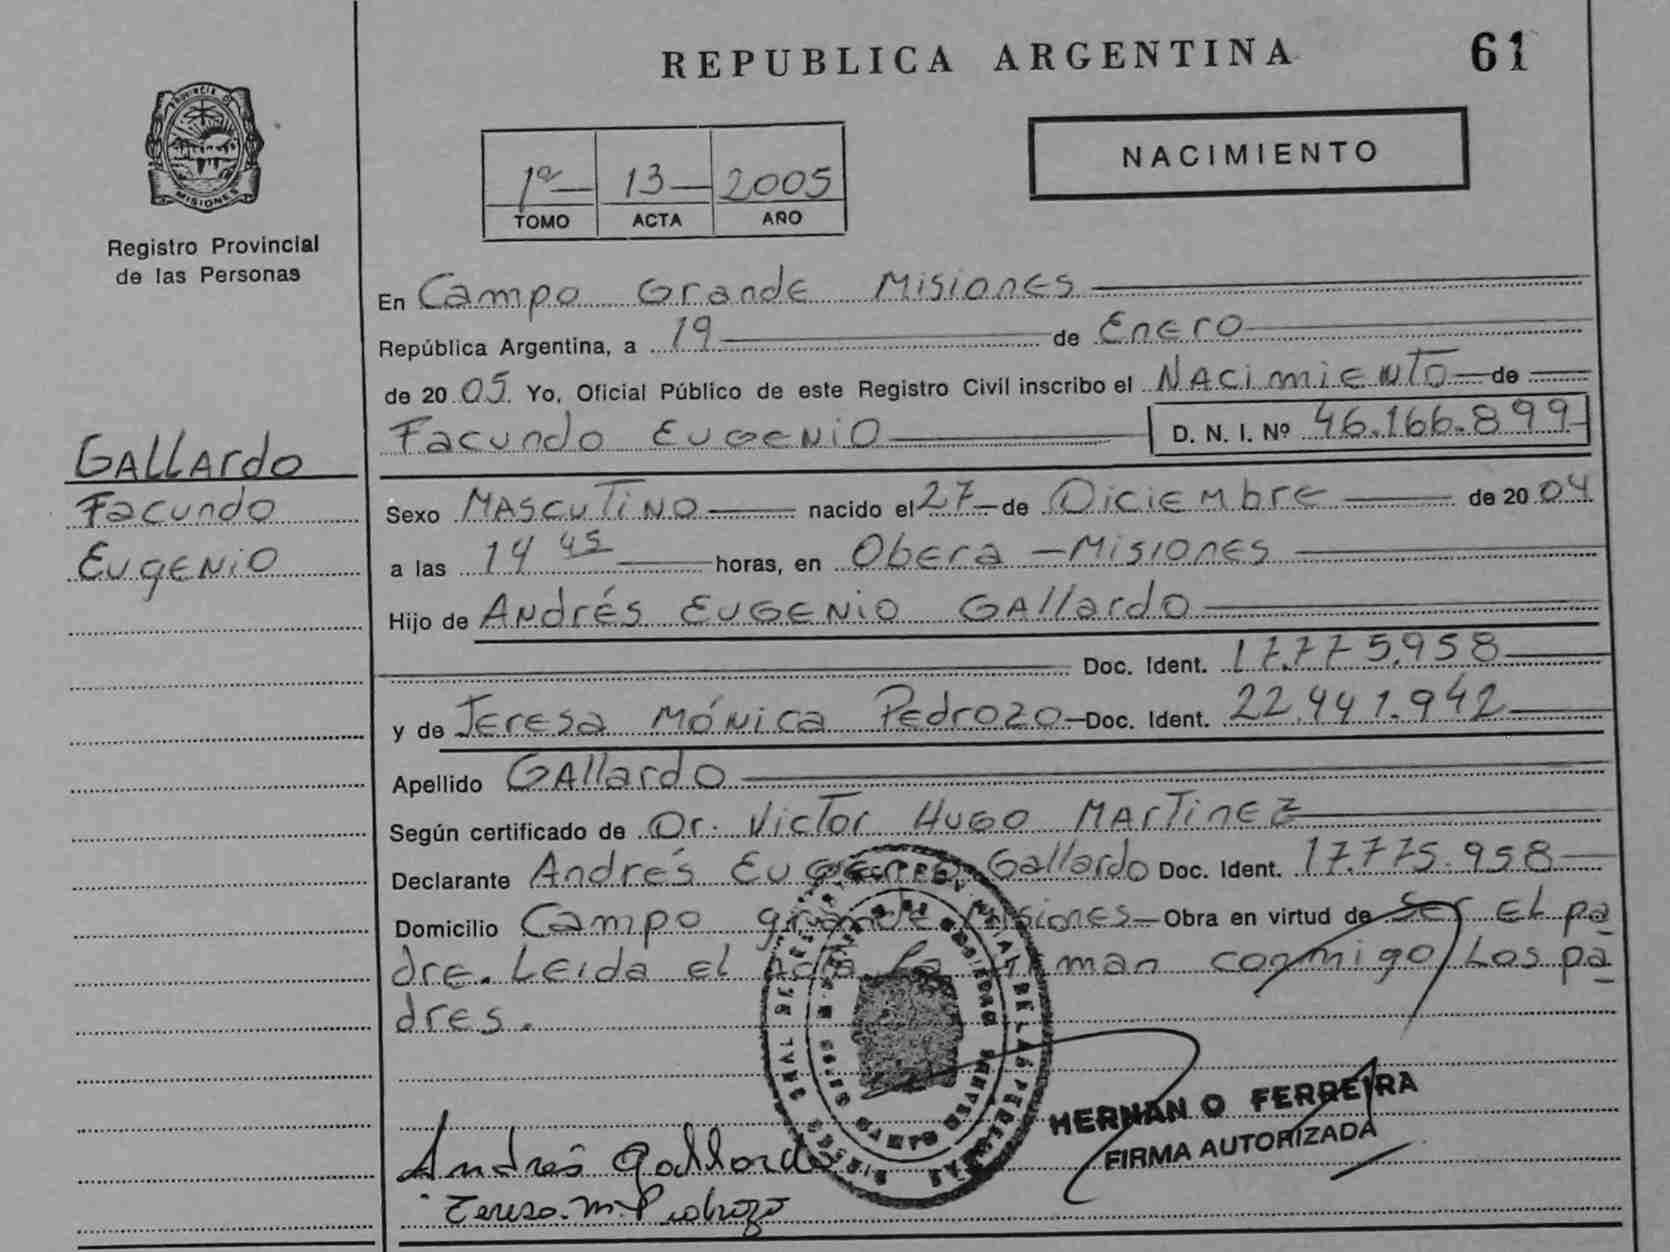 REPUBLICA ARGENTINA 61
PROVINCIA DE
MISIONES
Registro Provincial
de las Personas
NACIMIENTO
1º 13 2005
TOMO ACTA AÑO
En Campo Grande Misiones
República Argentina, a 19 de Enero
de 2005. Yo, Oficial Público de este Registro Civil inscribo el Nacimiento de
Facundo Eugenio D. N. I. Nº 46.166.899
Gallardo
Facundo
Eugenio
Sexo Masculino nacido el 27 de Diciembre de 2004
a las 14 45 horas, en Obera - Misiones
Hijo de Andrés Eugenio Gallardo
Doc. Ident. 17.775.958
y de Teresa Mónica Pedrozo Doc. Ident. 22.441.942
Apellido Gallardo
Según certificado de Dr. Victor Hugo Martinez
Declarante Andrés Eugenio Gallardo Doc. Ident. 17.775.958
Domicilio Campo grande Misiones Obra en virtud de Ser el pa
dre. Leida el Acta la firman conmigo Los pa
dres.
HERNAN O FERREIRA
FIRMA AUTORIZADA
Andrés Gallardo
Teresa M. Pedrozo